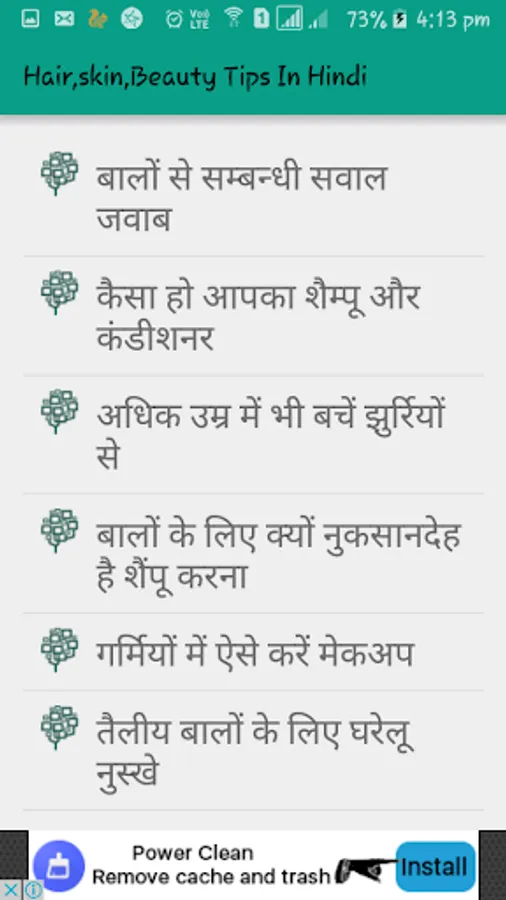 Vo)) LTE 1 73% 4:13 pm
Hair,skin,Beauty Tips In Hindi
बालों से सम्बन्धी सवाल
जवाब
कैसा हो आपका शैम्पू और
कंडीशनर
अधिक उम्र में भी बचें झुर्रियों
से
बालों के लिए क्यों नुकसानदेह
है शैंपू करना
गर्मियों में ऐसे करें मेकअप
तैलीय बालों के लिए घरेलू
नुस्खे
Power Clean
Remove cache and trash
Install